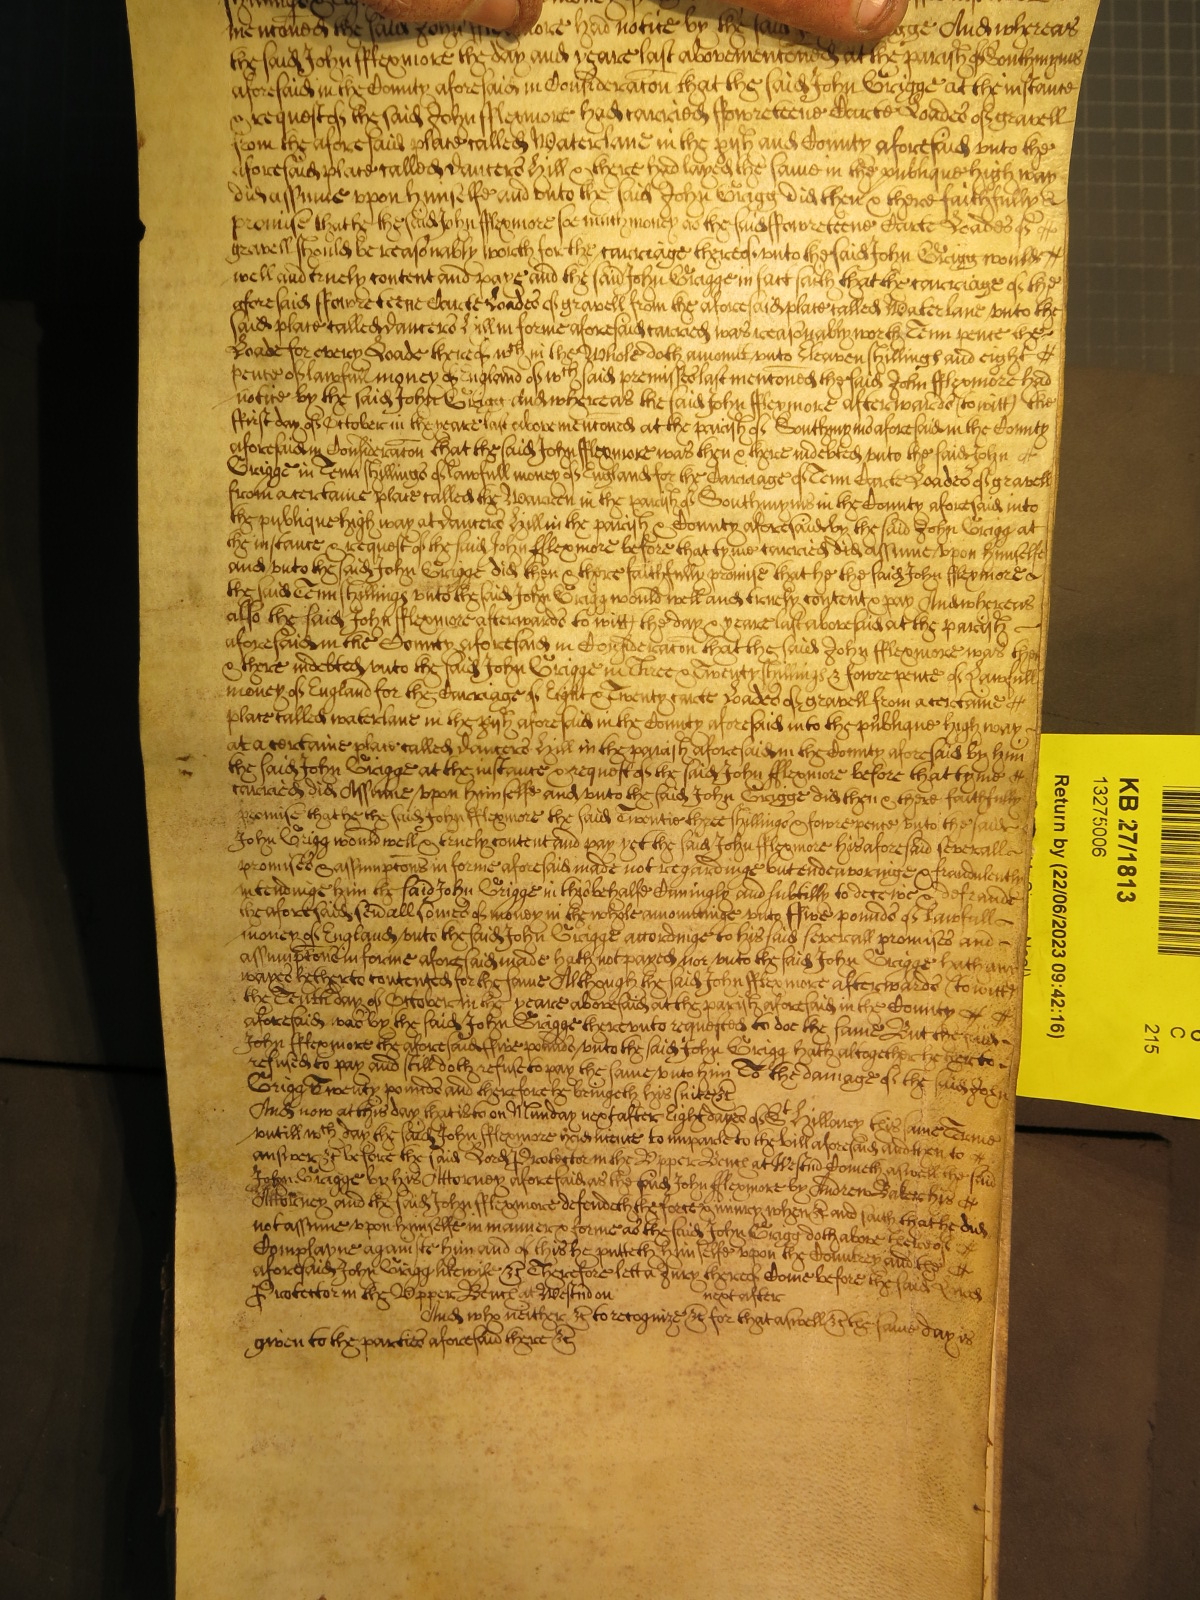 mentoned the said John fflexmore had notice by the said Grigge And whereas
the said John fflexmore the day and yeare last abovementoned at the parish of Southmyms
aforesaid in the County aforesaid in Consideraton that the said John Grigge at the instance
& request of the said John fflexmore had carried ffowreteene Carte Loades of gravell
from the aforesaid place called Waterlane in the pish and County aforesaid vnto the
aforesaid place called Dancers hill & there had layed the same in the publique high way
did assume vpon himselfe and vnto the said John Grigg did then & there faithfully &
promise that he the said John fflexmore soe much money as the said ffowreteene Carte Loades of
gravell should be reasonably worth for the carriage thereof vnto the said John Grigg would
well and truely content and paye and the said John Grigge in fact saith that the carriage of the
aforesaid ffowreteene Carte Loades of gravell from the aforesaid place called Waterlane vnto the
said place called Dancers hill in forme aforesaid carried was reasonably worth Tenn pence the
Loade for every Loade thereof wch in the whole doth amount vnto Eleaven shillings and eight
pence of lawfull money of England of wch said premisses last mentoned the said John fflexmore had
notice by the said John Grigg And whereas the said John fflexmore afterwards (to witt) the
ffirst day of October in the yeare last abovementoned at the parish of Southmyms aforesaid in the County
aforesaid in Consideraton that the said John fflexmore was then & there indebted vnto the said John
Grigge in Tenn shillings of lawfull money of England for the Carriage of Tenn Carte Loades of gravell
from a certaine place called the Warren in the parish of Southmyms in the County aforesaid into
the publique high way at Dancers hill in the parish & County aforesaid by the said John Grigg at
the instance & request of the said John fflexmore before that tyme carried did assume vpon himselfe
and vnto the said John Grigge did then & there faithfully promise that he the said John fflexmore
the said Tenn shillings vnto the said John Grigg would well and truely content & pay And whereas
also the said John fflexmore afterwards to witt the day & yeare last aboresaid at the parish
aforesaid in the County aforesaid in Consideraton that the said John fflexmore was then
& there indebted vnto the said John Grigge in Three & Twenty shillings & fowre pence of Lawfull
money of England for the Carriage of Eight & Twenty carte Loades of gravell from a certaine
place called waterlane in the pish aforesaid in the County aforesaid into the publique high way
at a certaine place called Dancers hill in the parish aforesaid in the County aforesaid by him
the said John Grigge at the instance & request of the said John fflexmore before that tyme
carried did Assume vpon himselfe and vnto the said John Grigge did then & there faithfully
promise that he the said John fflexmore the said Twentie three shillings & fowre pence vnto the said
John Grigg would well & truely content and pay yet the said John fflexmore his aforesaid severall
promises & assumptons in forme aforesaid made not regardinge but endeavoringe & fraudulently
intendinge him the said John Grigge in this behalfe Cunningly and subtilly to deceive & defraude
the aforesaid sevall somes of money in the whole amountinge vnto ffive pounds of Lawfull
money of England vnto the said John Grigge accordinge to his said severall promises and
assumptons in forme aforesaid made hath not payed nor vnto the said John Grigge hath any
wayes hetherto contented for the same Although the said John fflexmore afterwards (to witt)
the Tenth day of October in the yeare abovesaid at the parish aforesaid in the County
aforesaid was by the said John Grigge therevnto requested to doe the same But the said
John fflexmore the aforesaid ffive pounds vnto the said John Grigg hath altogether hetherto
refused to pay and still doth refuse to pay the same vnto him To the damage of the said John
Grigg Twenty pounds and therefore he bringeth his suite &c
And now at this day that is to on Munday next after Eight dayes of St Hillary this same Terme
vntill wch day the said John fflexmore had licence to imparle to the bill aforesaid and then to
answer &c before the said Lord Protector in the Vpper Bench at Westmr Cometh aswell the said
John Grigge by his Attorney aforesaid as the said John fflexmore by Andrew Baker his
Attorney and the said John fflexmore defendeth the force & iniury when &c and saith that he did
not assume vpon himselfe in manner & forme as the said John Grigg doth above thereof
Complayne againste him and of this he putteth himselfe vpon the Countrey and the
aforesaid John Grigg likewise &c Therefore lett a Jury thereof Come before the said Lord
Protector in the Vpper Bench at Westmr on next after
And who neither &c to recognize &c for that aswell &c the same day is
given to the parties aforesaid there &c
KB 27/1813
13275006
Return by (22/06/2023 09:42:16)
C
215